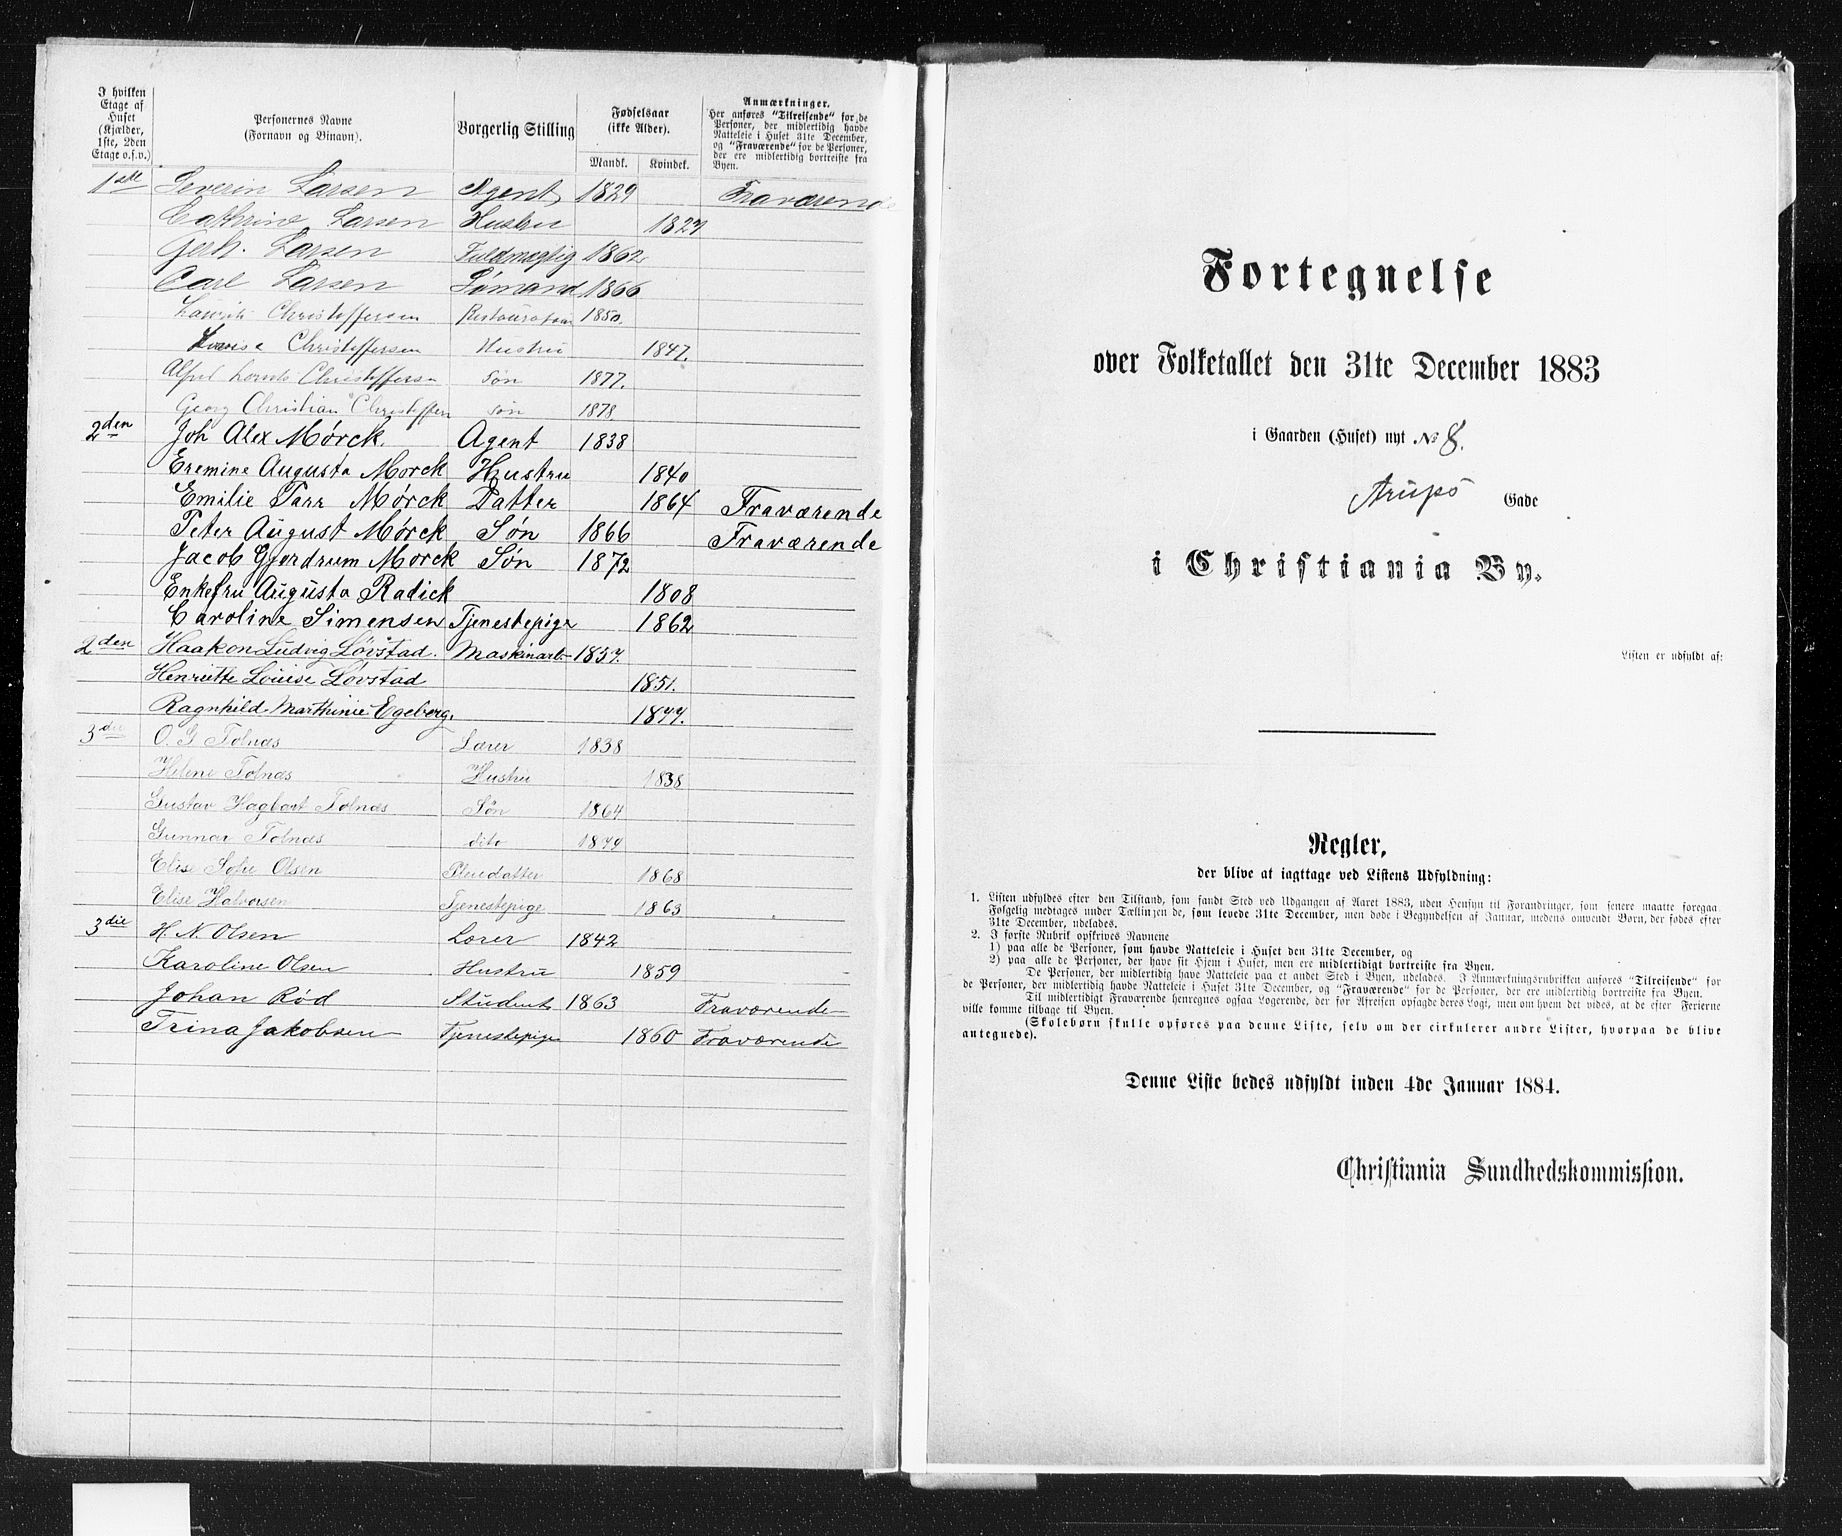 I hvilken Etage af Huset (Kjælder, 1ste, 2den Etage o.s.v.) | Personernes Navne (Fornavn og Binavn). | Borgerlig Stilling | Fødselsaar (ikke Alder). Mandk. Kvindek. | Anmærkninger. Her anføres "Tilreisende" for de Personer, der midlertidig havde Natteleie i Huset 31te December, og "Fraværende" for de Personer, der ere midlertidig bortreiste fra Byen.
1ste Severin Larsen Agent 1829 Fraværende
Cathrine Larsen Hustru 1829
Gerh. Larsen Fuldmægtig 1862
Carl Larsen Sømand 1866
Laurits Christoffersen Restauratør 1850.
Christoffersen Hustru 1847.
Christoffersen Søn 1877.
Georg Christian Christoffersen Søn 1878
2den Joh Alex Mørck. Agent 1838
Eremine Augusta Morck Hustru 1840
Emilie Parr Mørck Datter 1864 Fraværende
Peter August Mørck Søn 1866 Fraværende
Jacob Gjordrum Morck Søn 1872
Enkefru Augusta Radick 1808
Caroline Simensen Tjenestepige 1862
2den Haakon Ludvig Løvstad. Maskinarb. 1857.
Henriette Louise Løvstad 1851.
Ragnhild Marthinie Egeberg. 1877.
3die O. G Tolnæs Lærer 1838
Helene Tolnæs Hustru 1838
Gustav Hagbart Tolnæs Søn 1864
Gunnar Tolnæs dito 1879
Elise Sofie Olsen Pleiedatter 1868
Elise Halvorsen Tjenestepige 1863
3die H. N. Olsen Lærer 1842
Karoline Olsen Hustru 1859
Johan Rød Student 1863 Fraværende
Trina Jakobsen Tjenestepige 1860 Fraværende
Fortegnelse
over Folketallet den 31te December 1883
i Gaarden (Huset) nyt № 8.
Arups Gade
i Christiania By.
Listen er udfyldt af:
Regler,
der blive at iagttage ved Listens Udfyldning:
1. Listen udfyldes efter den Tilstand, som fandt Sted ved Udgangen af Aaret 1883, uden Hensyn til Forandringer, som senere maatte foregaa.
Følgelig medtages under Tællingen de, som levede 31te December, men døde i Begyndelsen af Januar, medens omvendt Børn, der fødes efter
31te December, udelades.
2. I første Rubrik opskrives Navnene
1) paa alle de Personer, som havde Natteleie i Huset den 31te December, og
2) paa alle de Personer, der have sit Hjem i Huset, men ere midlertidigt bortreiste fra Byen.
De Personer, der midlertidig have Natteleie paa et andet Sted i Byen, udelades. I Anmærkningsrubrikken anføres "Tilreisende" for
de Personer, der midlertidig havde Natteleie i Huset 31te December, og "Fraværende" for de Personer, der ere midlertidig bortreiste fra Byen.
Til midlertidigt Fraværende henregnes ogsaa Logerende, der før Afreisen opsagde deres Logi, men om hvem det vides, at de efter Ferierne
ville komme tilbage til Byen.
(Skolebørn skulle opføres paa denne Liste, selv om der cirkulerer andre Lister, hvorpaa de blive
antegnede).
Denne Liste bedes udfyldt inden 4de Januar 1884.
Christiania Sundhedskommission.